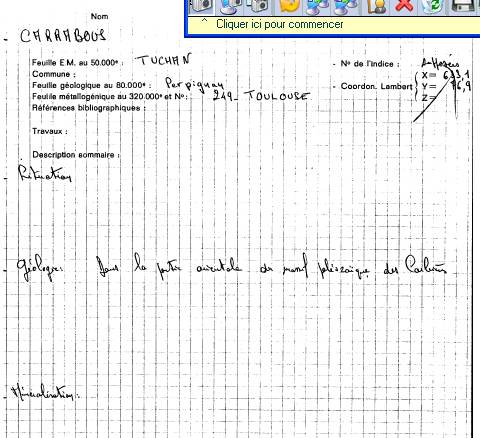 ^ Cliquer ici pour commencer
Nom
- CARRABOUS
Feuille E.M. au 50.000e : TUCHAN
- No de l'indice :
Commune :
Feuille géologique au 80.000e : Perpignan
- Coordon. Lambert
X=
Y=
Z=
Feuille métallogénique au 320.000e et No : 249 - TOULOUSE
Références bibliographiques :
Travaux :
Description sommaire :
- Situation
- Géologie: Dans la partie orientale du massif des Corbières
- Minéralisation: